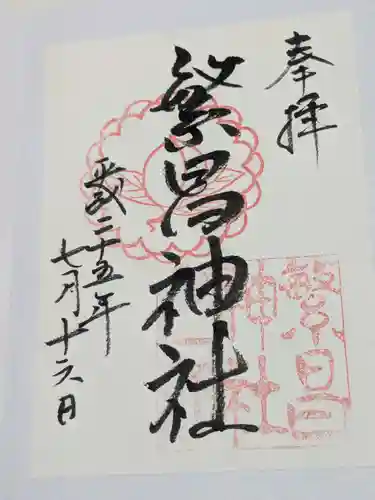 奉拝
繁昌神社
平成二十五年
七月十六日
繁昌
神社